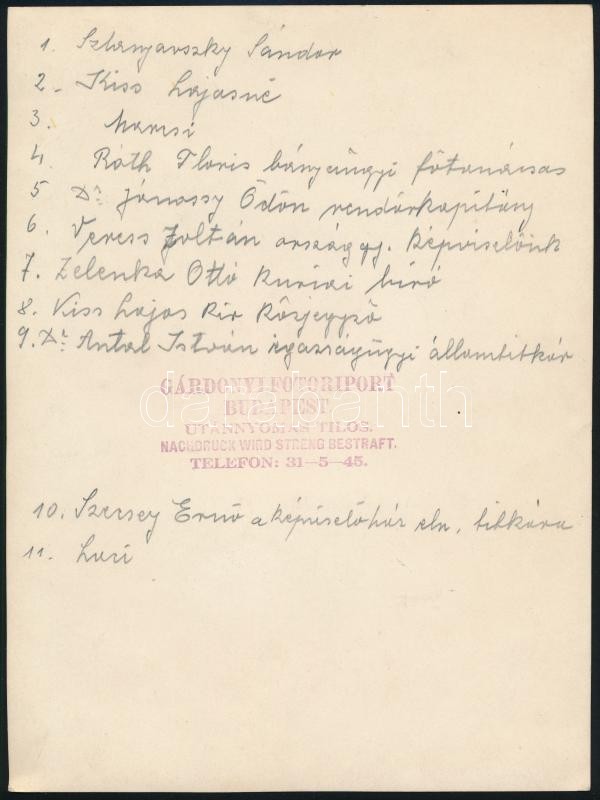 1. Sztanyavszky Sándor
2. Kiss Lajosné
3. Marcsi
4. Ráth Floris bányaügyi főtanácsos
5 Dr. Jánossy Ödön rendőrkapitány
6. Veress Zoltán országgy. képviselőnk
7. Zelenka Ottó kuriai biró
8. Kiss Lajos kir közjegyző
9. Dr. Antal István igazságügyi államtitkár
GÁRDONYI FOTORIPORT
BUDAPEST
UTÁNNYOMÁS TILOS.
NACHDRUCK WIRD STRENG BESTRAFT.
TELEFON: 31—5—45.
darabanth
10. Szersey Ernő a képviselőház eln. titkára
11. Luci